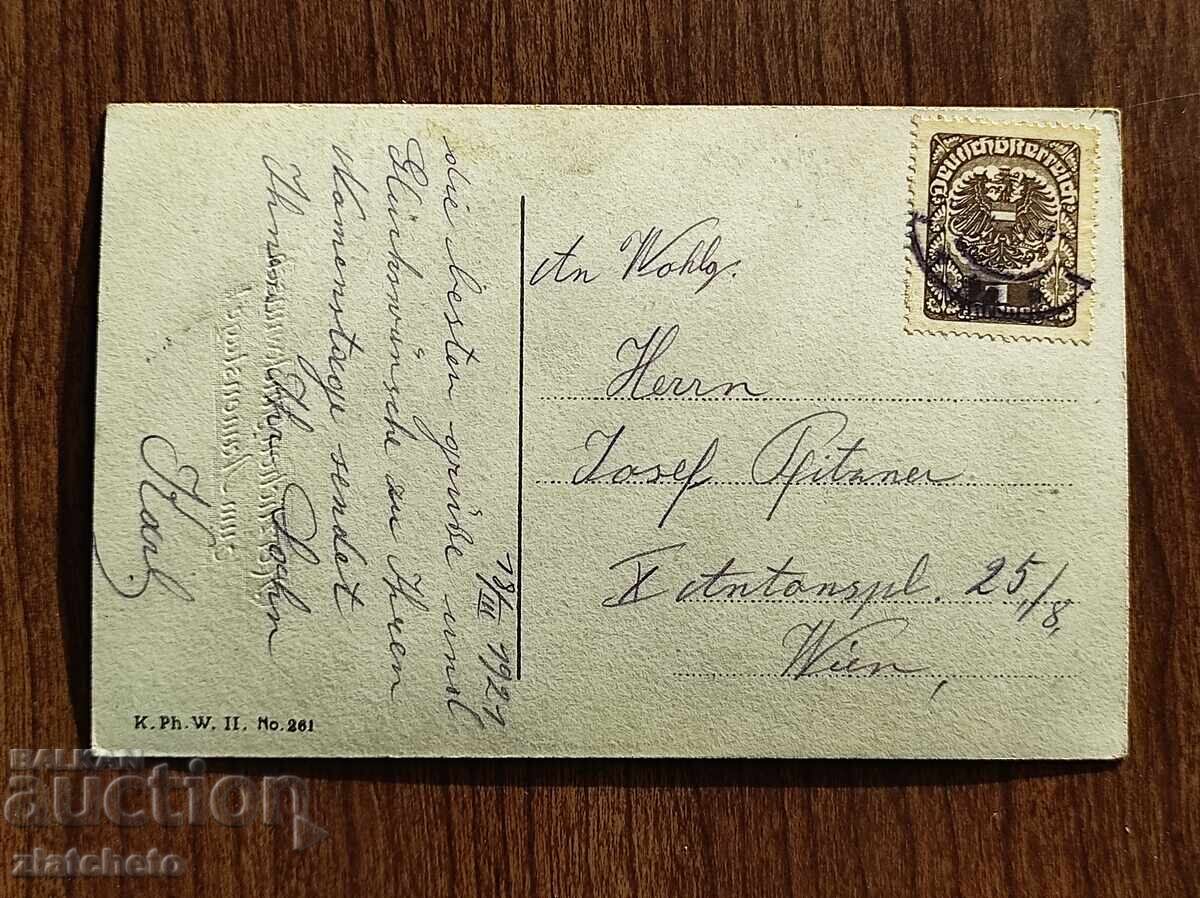 18/III 1921
die besten grüße und
Glückwünsche zu Ihren
Namenstage sendet
Ihn
Ihr Sohn
Karl
An Wohlg.
Herrn
Josef Pitzner
X Antonspl. 25/8,
Wien,
Deutschösterreich
K. Ph. W. II. No. 261
BALKAN
auction
zlatcheto